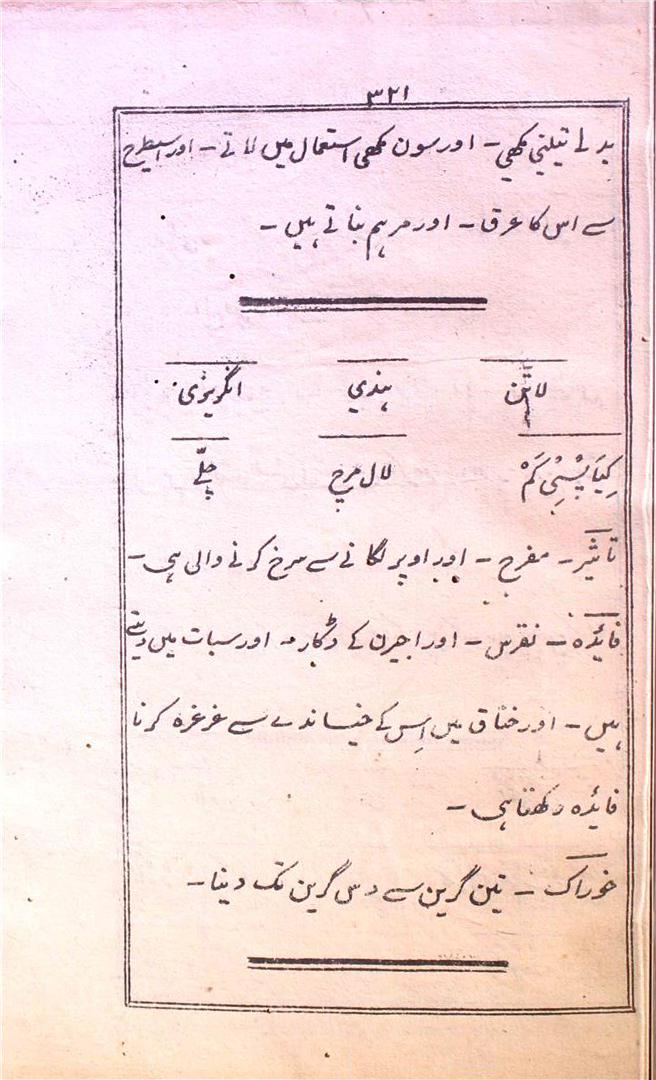 ۳۲۱
بدلے تیلنی مکھی - اور سون مکھی استعمال میں لاتے - اور اسیطرح
سے اس کا عرق - اور مرہم بناتے ہیں -
لاتن ہندی انگریزی
کِیَاپْسِیْ کَمْ لال مرچ چِلّے
تاثیر - مفرح - اور اوپر لگانے سے سرخ کرنے والی ہی -
فایٔدہ - نقرس - اور اجیرن کے ڈکار مہ اور سبات میں دیتے
ہیں - اور خناق میں اِس کے خیساندے سے غرغرہ کرنا
فایٔدہ رکھتا ہی -
خوراک - تین گرین سے دس گرین تک دینا -